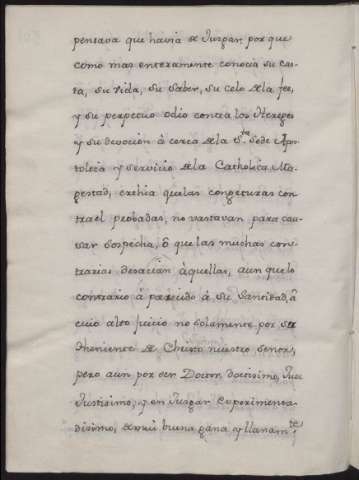 pensava que havia de Juzgar, porque
como mas enteramente conocia su cas-
ta, su vida, su saber, su celo de la fee,
y su perpectuo odio contra los Hereges
y su devocion à cerca de la S.ta Sede Apos-
tolica y servicio de la Catholica Ma-
gestad, crehia que las congeturas con-
tra el probadas, no vastavan para cau-
sar sospecha, ô que las muchas con-
trarias desacian àquellas, aun que lo
contrario à parecido à su Santidad, â
cuio alto juicio no solamente por su
theniente de Christo nuestro Senor,
pero aun por ser Doctor doctisimo, Juez
Justisimo, y en Juzgar experimenta-
disimo, de mui buena gana y llanam.te